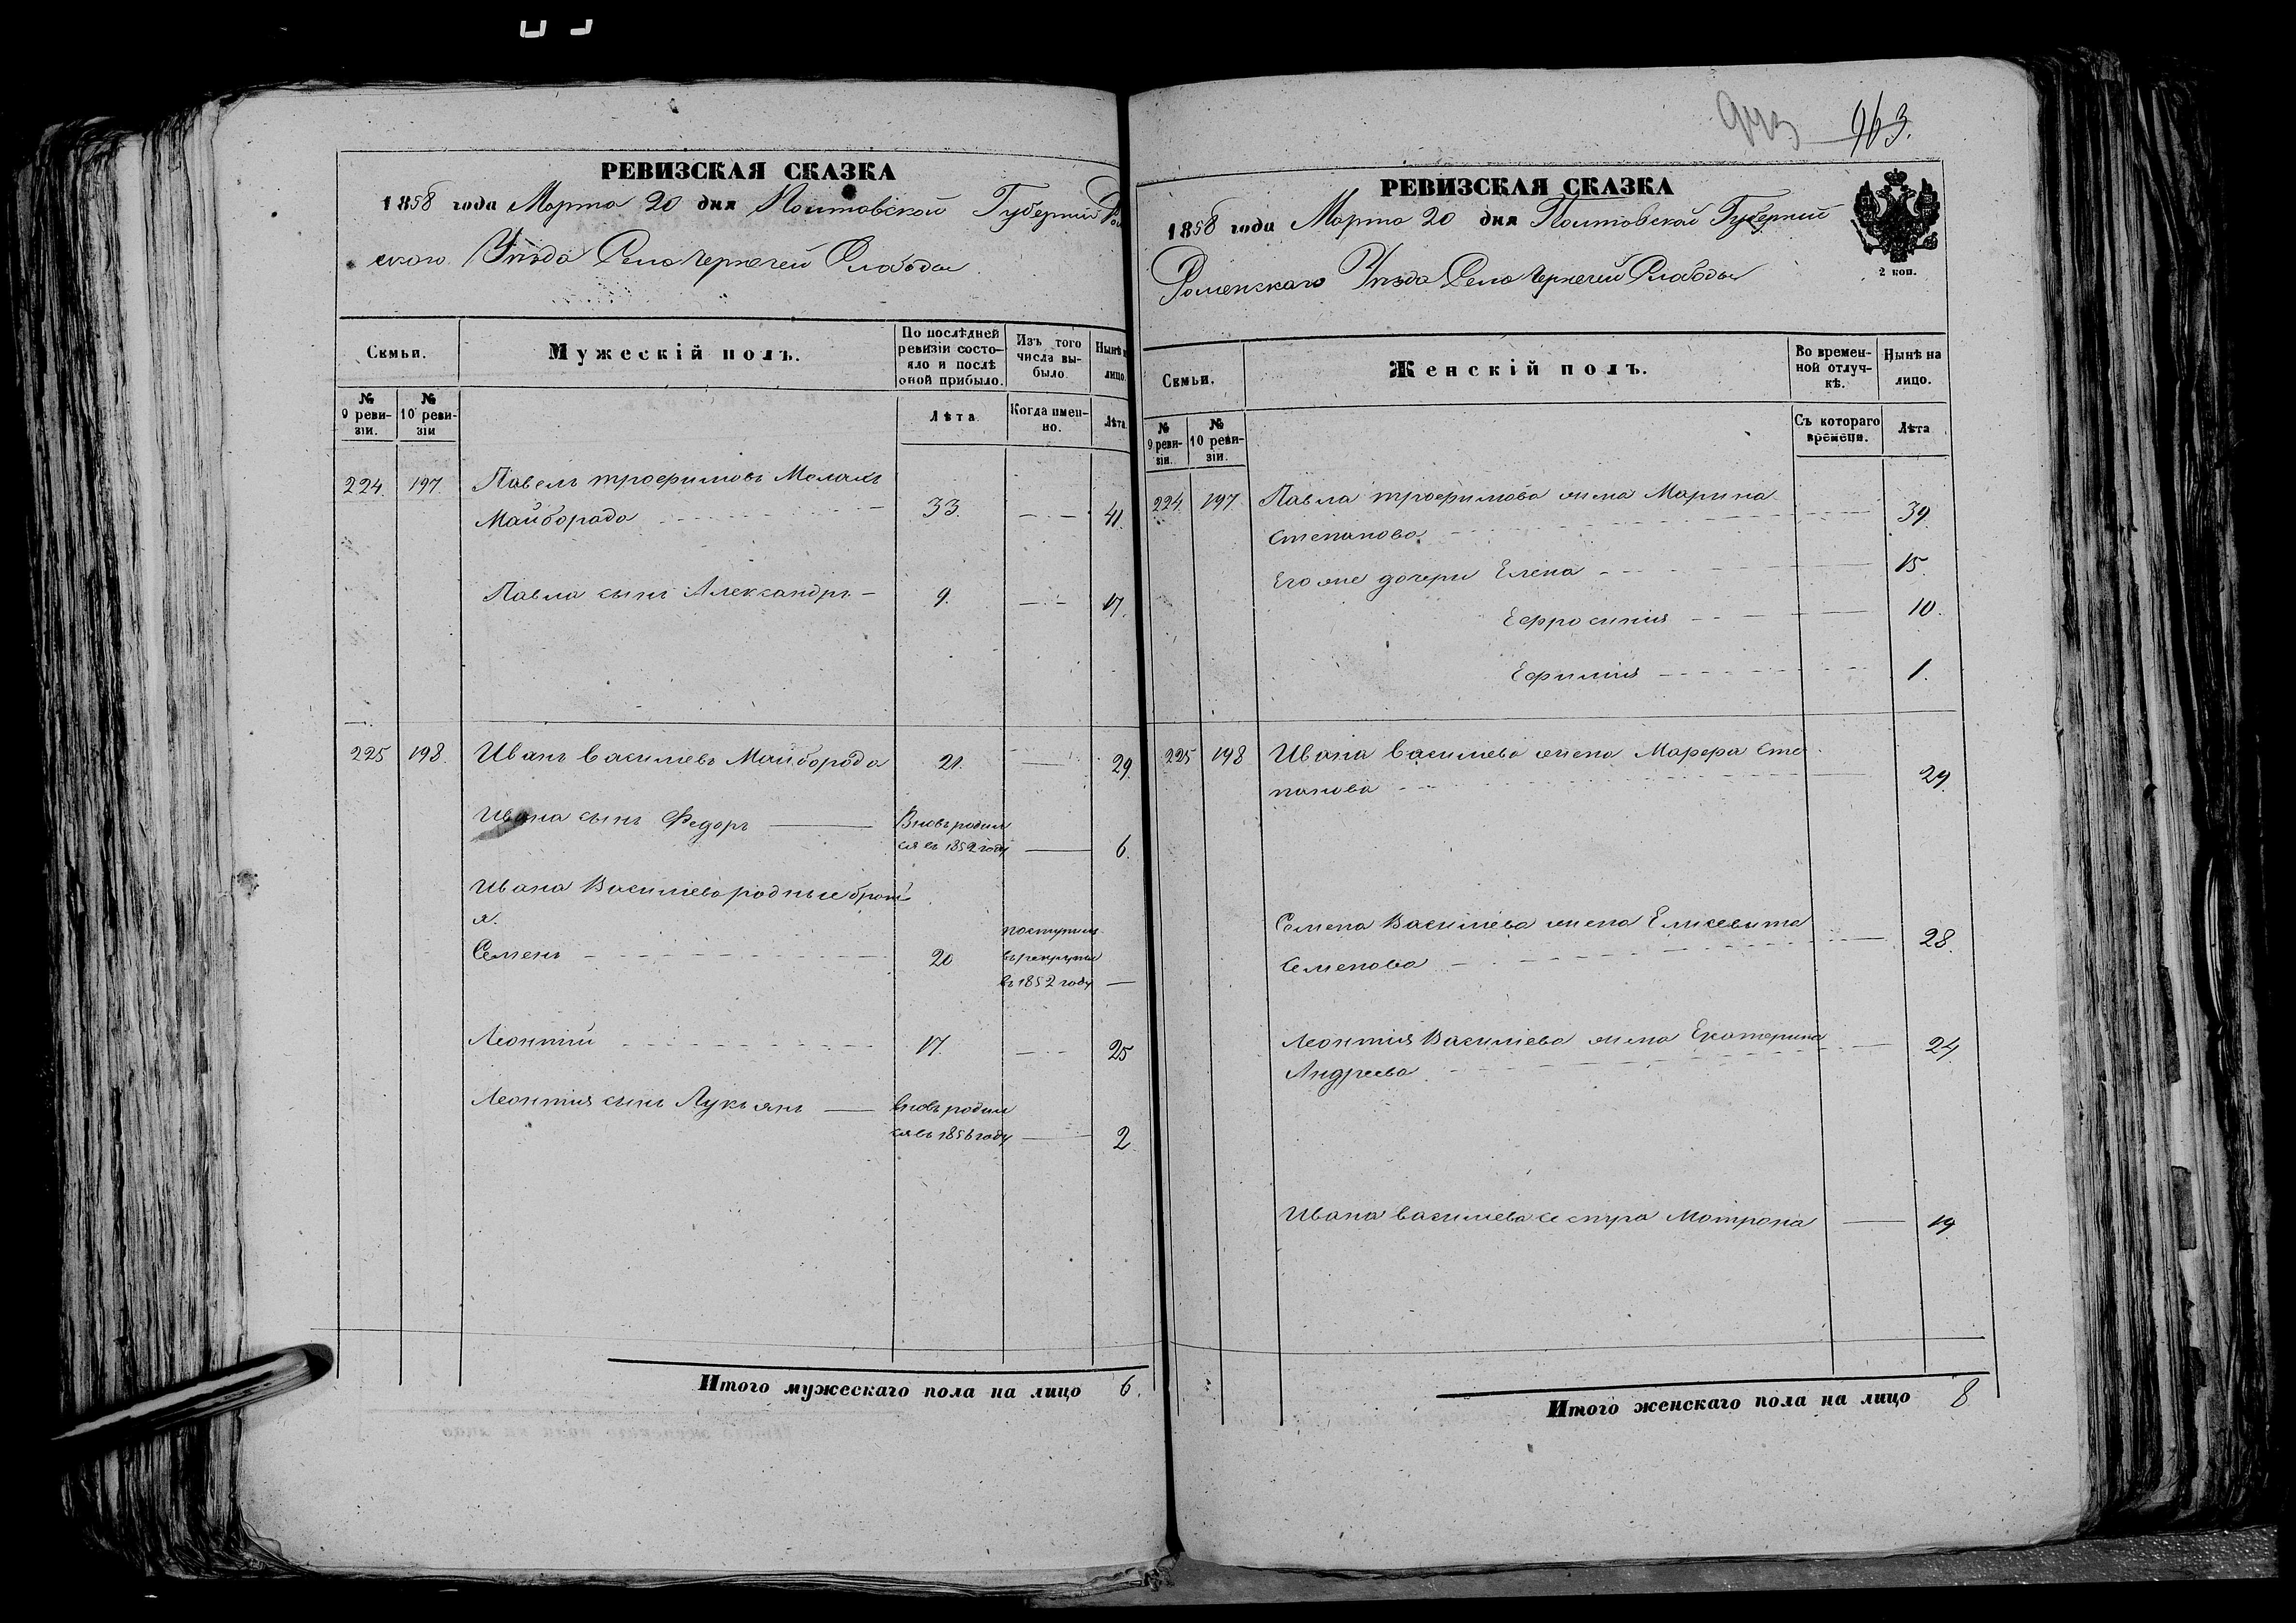 РЕВИЗСКАЯ СКАЗКА
1858 года Марта 20 дня Полтавской Губернии Ром
скаго Уѣзда Села Чернечей Слободы
Семьи.
Мужескій полъ.
По послѣдней ревизіи состояло и послѣ оной прибыло.
Изъ того числа выбыло
Нынѣ на лицо.
№ 9 ревизіи.
№ 10 ревизіи
Лѣта
Когда именно.
Лѣта.
224. 197. Павелъ трофимовъ Малахъ
Майборода 33. 41.
Павла сынъ Александръ 9. 17.
225 198. Иванъ Василіевъ Майборода 21. 29.
Ивана сынъ Федоръ Вновь родил
ся въ 1852 году 6.
Ивана Василіева родные брать
я.
Семенъ 20 поступилъ
въ рекруты
въ 1852 году
Леонтій 17. 25
Леонтія сынъ Лукьянъ вновь родил
ся въ 1856 году 2
Итого мужескаго пола на лицо 6.
943 963.
РЕВИЗСКАЯ СКАЗКА
1858 года Марта 20 дня Полтавской Губерніи
Роменскаго Уѣзда Села Чернечей Слободы
2 коп.
Семьи.
Женскій полъ.
Во временной отлучкѣ.
Нынѣ на лицо.
№ 9 ревизіи.
№ 10 ревизіи.
Съ котораго времени.
Лѣта
224. 197. Павла трофимова жена Марина
Степанова 39.
Его же дочери Елена 15.
Ефросинія 10.
Ефимія 1.
225 198 Ивана Василіева жена Марфа Сте
панова 29.
Семена Василіева жена Елисевита
Семенова 28.
Леонтія Василіева жена Екатерина
Андреева 24
Ивана Василіева сестра Матрона 19.
Итого женскаго пола на лицо 8